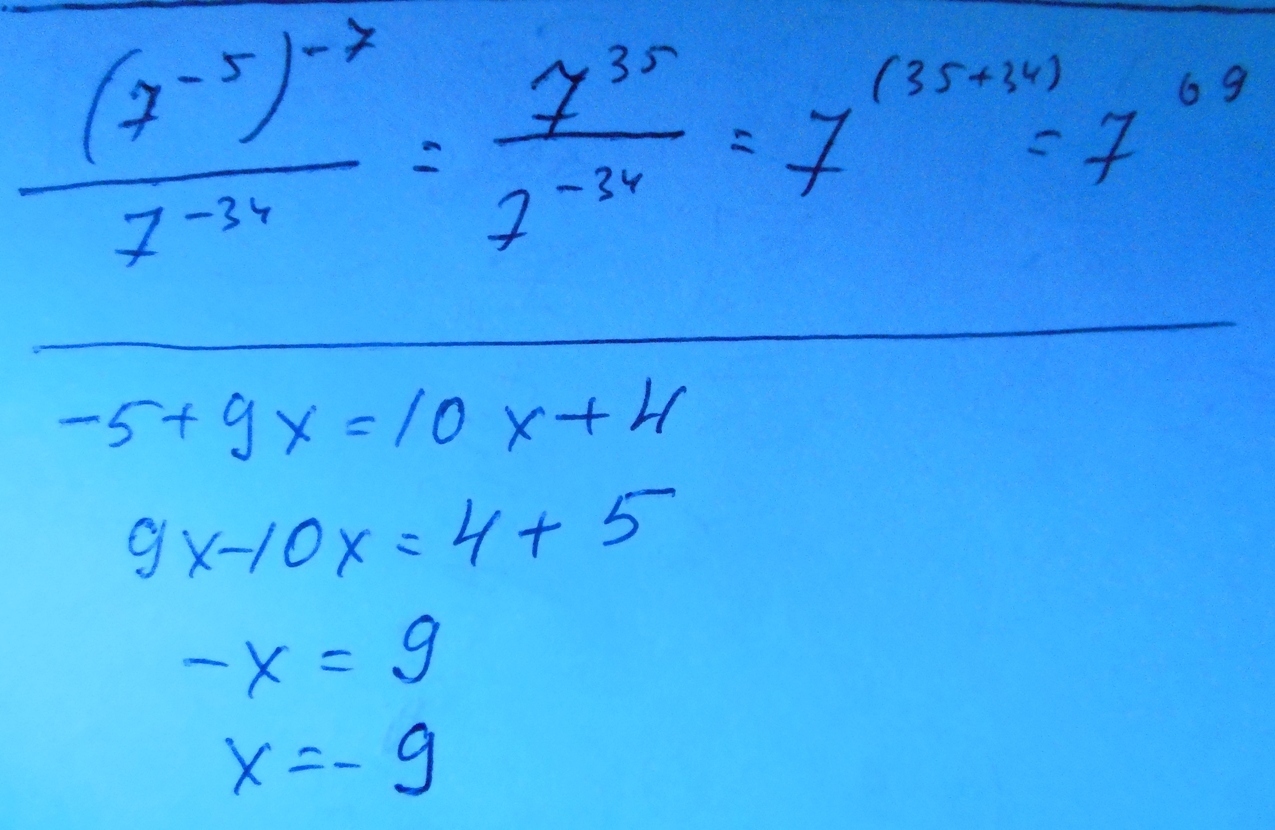 (7^-5)^-7 / 7^-34 = 7^35 / 7^-34 = 7^(35+34) = 7^69
-5+9x=10x+4
9x-10x=4+5
-x=9
x=-9